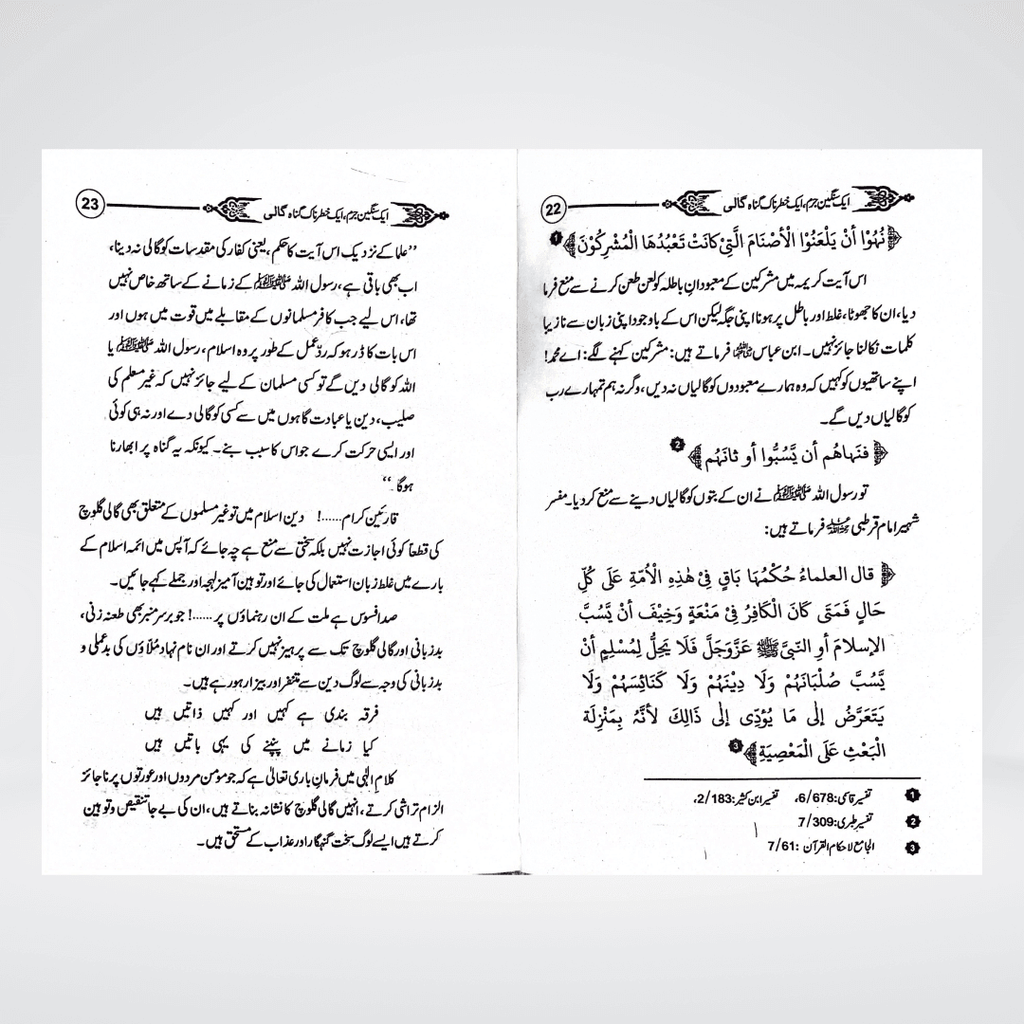 ایک سنگین جرم، ایک خطرناک گناہ گالی
22
﴿نُهُوْا أَنْ يَلْعَنُوْا الْأَصْنَامَ الَّتِيْ كَانَتْ تَعْبُدُهَا الْمُشْرِكُوْنَ﴾ ❶
اس آیت کریمہ میں مشرکین کے معبودانِ باطلہ کو لعن طعن کرنے سے منع فرما
دیا، ان کا جھوٹا، غلط اور باطل پر ہونا اپنی جگہ لیکن اس کے باوجود اپنی زبان سے نازیبا
کلمات نکالنا جائز نہیں۔ ابن عباس رضی اللہ عنہما فرماتے ہیں: مشرکین کہنے لگے: اے محمد!
اپنے ساتھیوں کو کہیں کہ وہ ہمارے معبودوں کو گالیاں نہ دیں، وگرنہ ہم تمہارے رب
کو گالیاں دیں گے۔
﴿فَنَهاهُم أن يَّسُبُّوا أو ثانَهُم﴾ ❷
تو رسول اللہ ﷺ نے ان کے بتوں کو گالیاں دینے سے منع کر دیا۔ مفسر
شہیر امام قرطبی رحمہ اللہ فرماتے ہیں:
﴿قال العلماءُ حُكْمُهَا بَاقٍ فِيْ هٰذِهِ الْأُمَّةِ عَلَى كُلِّ
حَالٍ فَمَتَى كَانَ الْكَافِرُ فِيْ مَنْعَةٍ وَخِيْفَ أنْ يَّسُبَّ
الإسلامَ أوِ النَّبِيَّ ﷺ عَزَّوَجَلَّ فَلَا يَحِلُّ لِمُسْلِمٍ أنْ
يَّسُبَّ صُلْبَانَهُمْ وَلَا دِيْنَهُمْ وَلَا كَنَائِسَهُمْ وَلَا
يَتَعَرَّضُ إلٰى مَا يُؤَدِّى إلٰى ذَالِكَ لأنَّهُ بِمَنْزِلَة
الْبَعْثِ عَلَى الْمَعْصِيَةِ﴾ ❸
❶ تفسیر قاسمی: 6/678، تفسیر ابن کثیر: 2/183،
❷ تفسیر طبری: 7/309
❸ الجامع لاحکام القرآن: 7/61
ایک سنگین جرم، ایک خطرناک گناہ گالی
23
”علما کے نزدیک اس آیت کا حکم، یعنی کفار کی مقدسات کو گالی نہ دینا،
اب بھی باقی ہے، رسول اللہ ﷺ کے زمانے کے ساتھ خاص نہیں
تھا، اس لیے جب کافر مسلمانوں کے مقابلے میں قوت میں ہوں اور
اس بات کا ڈر ہو کہ ردِّ عمل کے طور پر وہ اسلام، رسول اللہ ﷺ یا
اللہ کو گالی دیں گے تو کسی مسلمان کے لیے جائز نہیں کہ غیر مسلم کی
صلیب، دین یا عبادت گاہوں میں سے کسی کو گالی دے اور نہ ہی کوئی
اور ایسی حرکت کرے جو اس کا سبب بنے۔ کیونکہ یہ گناہ پر ابھارنا
ہوگا۔“
قارئین کرام......! دین اسلام میں تو غیر مسلموں کے متعلق بھی گالی گلوچ
کی قطعاً کوئی اجازت نہیں بلکہ سختی سے منع ہے چہ جائے کہ آپس میں ائمہ اسلام کے
بارے میں غلط زبان استعمال کی جائے اور توہین آمیز لہجہ اور جملے کہے جائیں۔
صد افسوس ہے ملت کے ان رہنماؤں پر......! جو بر سر منبر بھی طعنہ زنی،
بدزبانی اور گالی گلوچ تک سے پرہیز نہیں کرتے اور ان نام نہاد مُلّاؤں کی بدعملی و
بدزبانی کی وجہ سے لوگ دین سے متنفر اور بیزار ہو رہے ہیں۔
فرقہ بندی ہے کہیں اور کہیں ذاتیں ہیں
کیا زمانے میں پنپنے کی یہی باتیں ہیں
کلام الٰہی میں فرمان باری تعالیٰ ہے کہ جو مومن مردوں اور عورتوں پر ناجائز
الزام تراشی کرتے، انہیں گالی گلوچ کا نشانہ بناتے ہیں، ان کی بے جا تنقیص و توہین
کرتے ہیں ایسے لوگ سخت گنہگار اور عذاب کے مستحق ہیں۔